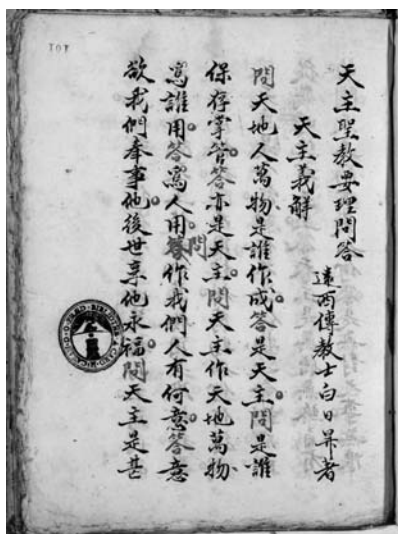 101
天主聖教要理問答
遠西傳教士白日昇著
天主義解
問天地人萬物是誰作成。答是天主。問是誰
保存掌管。答亦是天主。問天主作天地萬物
爲誰用。答爲人用。問作我們人有何意。答意
欲我們奉事他。後世享他永福。問天主是甚